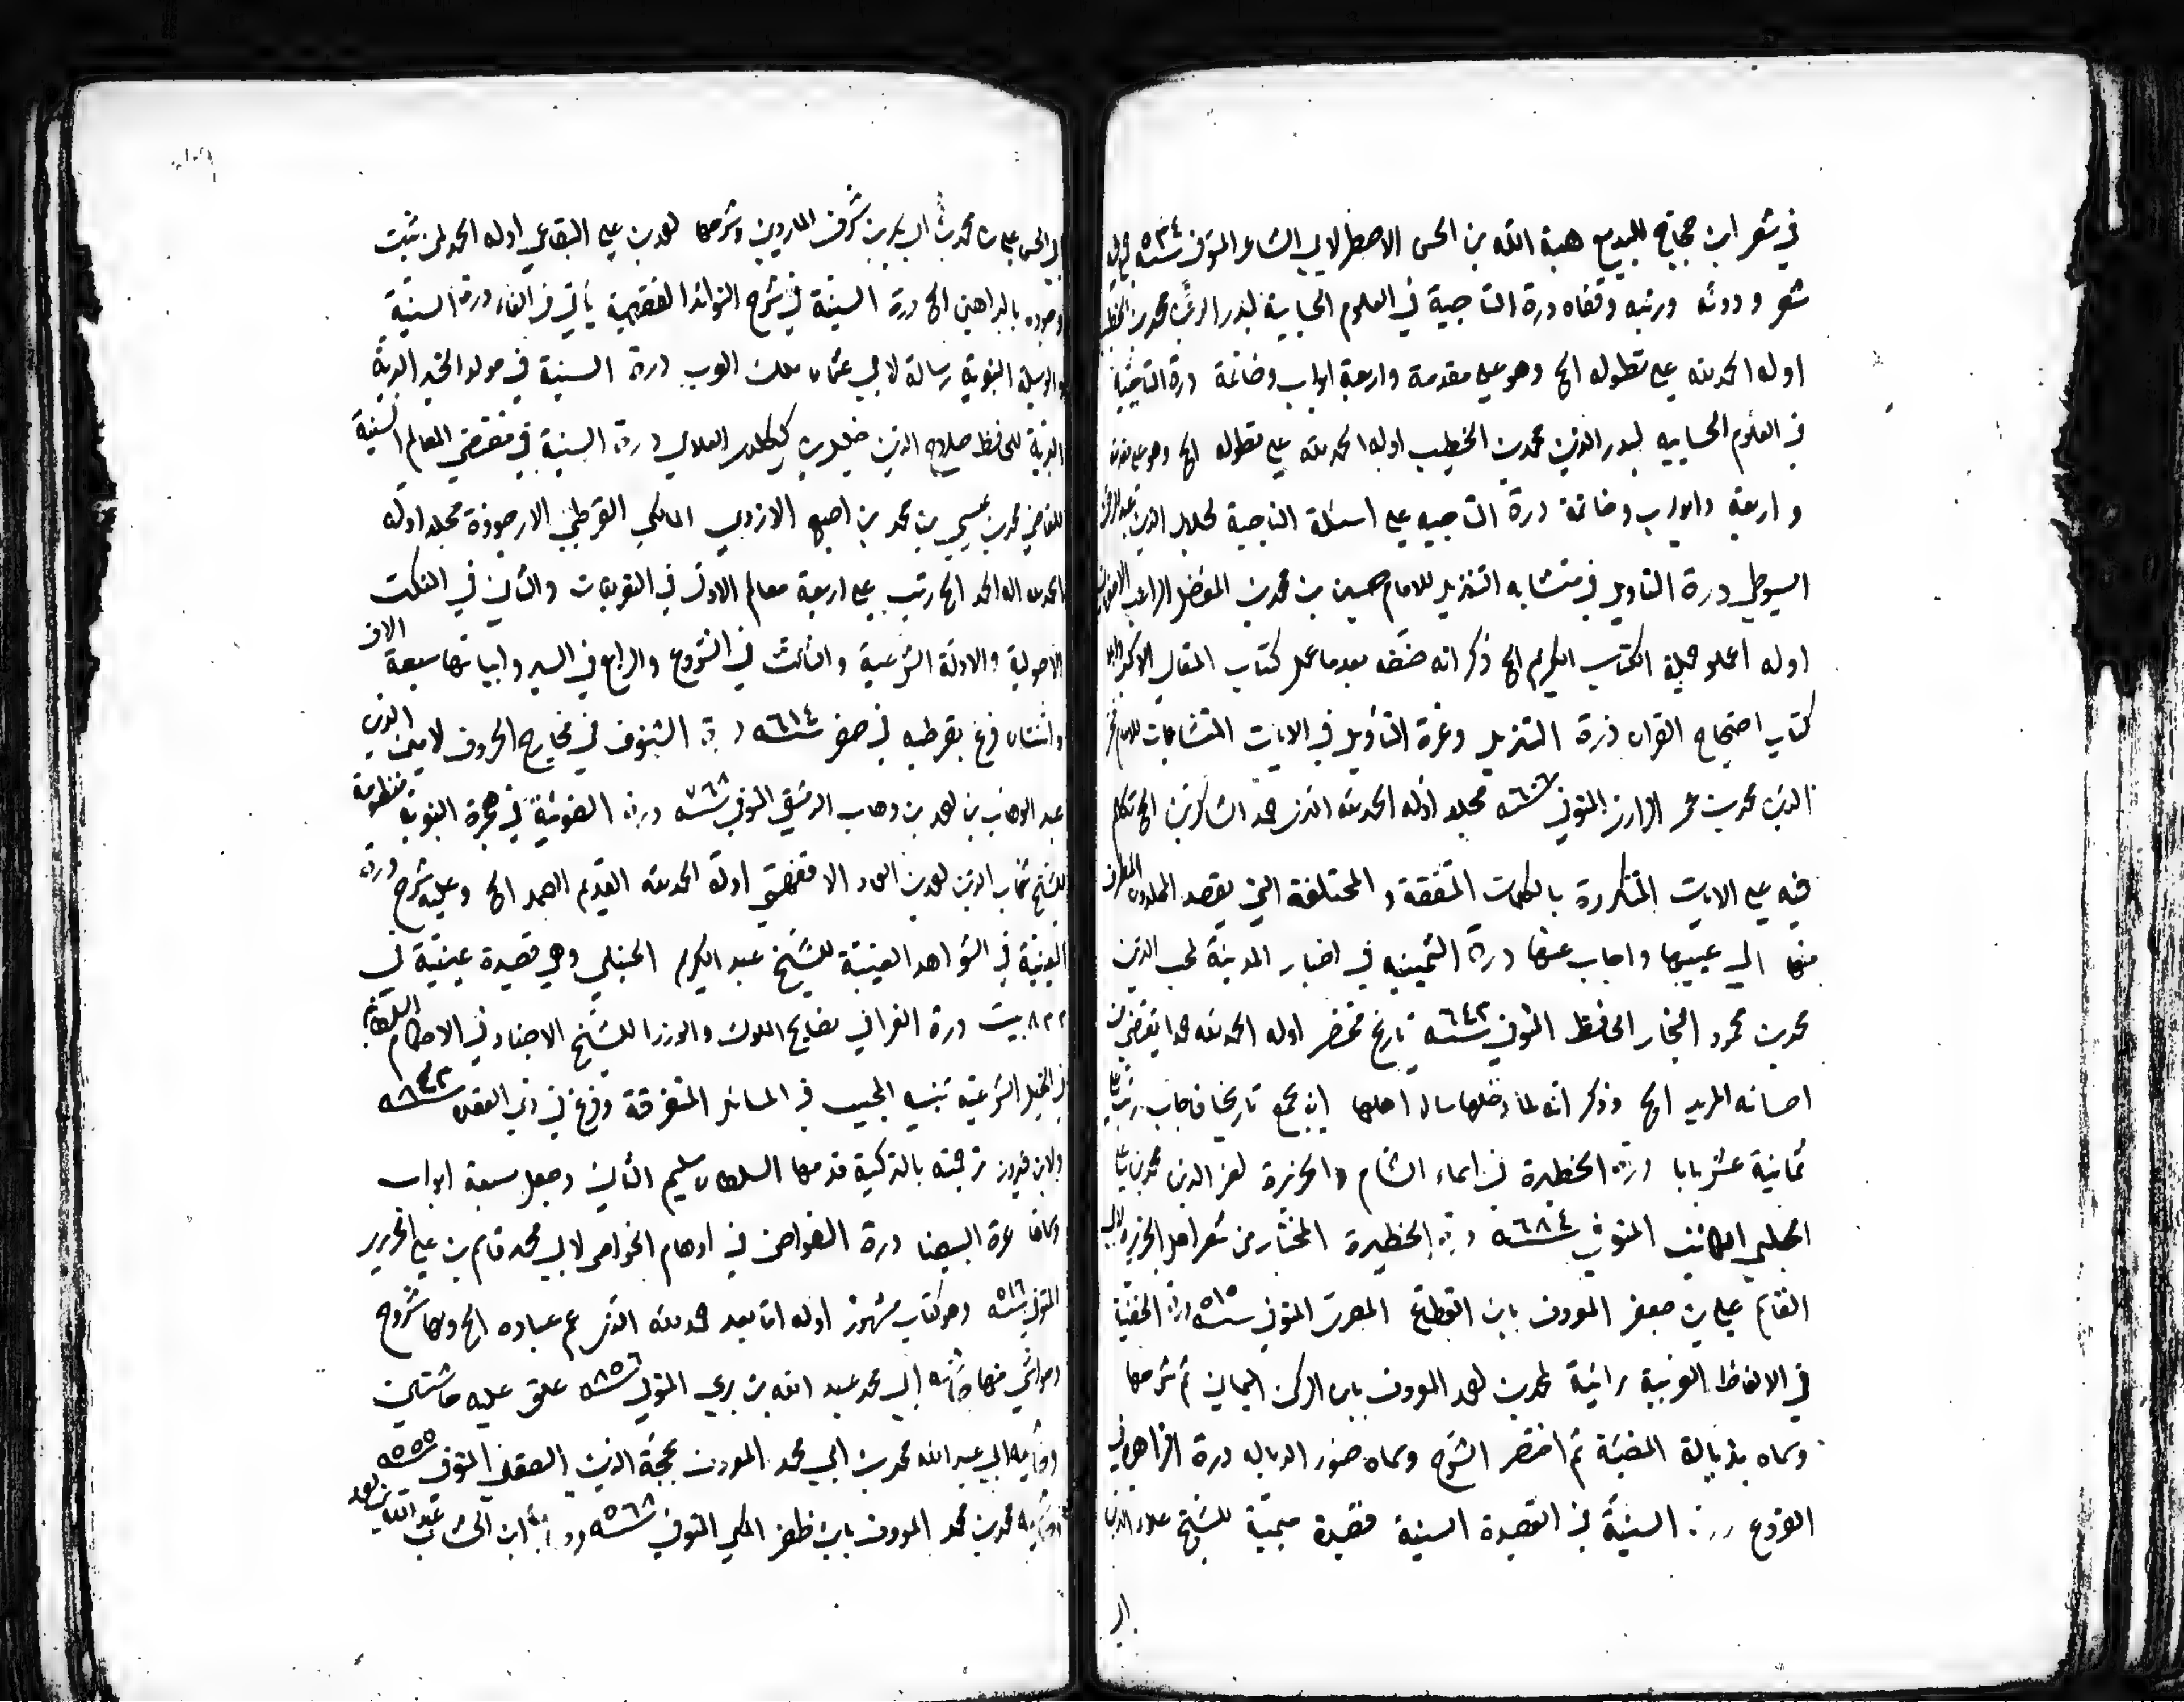 في شعر ابن حجاج للبديع هبة الله بن الحسن الاصطرلابي الشاعر المتوفى سنة ٥٣٤
شعر ودونه ورتبه وقفاه درة التاجية في العلوم الحسابية لبدر الدين محمد بن الخطيب
اوله الحمد لله على تطوله الخ وهو على مقدمة واربعة ابواب وخاتمة درة التاجية
في العلوم الحسابيه لبدر الدين محمد بن الخطيب اوله الحمد لله على تطوله الخ وهو على مقدمة
واربعة وابواب وخاتمة درة التاجيه على اسئلة الناجية لجلال الدين عبد الرحمن
السيوطي درة التاويل في متشابه التنزيل للامام حسين بن محمد بن المفضل الراغب الاصفهاني
اوله الكتاب الكريم الخ ذكر انه صنفه بعدما عمل كتاب المعاني الاكبر
كتاب احتجاج القران درة التنزيل وغرة التأويل في الايات المتشابهات للامام فخر
الدين محمد بن عمر الرازي المتوفى سنة ٦٠٦ مجلد اوله الحمد لله الذي حمد الشاكرين الخ تكلم
فيه على الايات المتكررة بالكلمات المتفقة والمختلفة التي يقصد الملحدون التطرق
منها الى عيبها واجاب عنها درة الثمينه في اخبار المدينة لمحب الدين
محمد بن محمود النجار الحافظ المتوفى سنة ٦٤٣ تاريخ مختصر اوله الحمد لله حمدا يقتضي من
احسانه المزيد الخ وذكر انه لما دخلها سال اهلها ان يجمع تاريخا فاجاب رتب على
ثمانية عشر بابا درة الخطيرة في اسماء الشام والجزيرة لعز الدين محمد بن علي
الحلبي الكاتب المتوفى سنة ٦٨٤ درة الخطيرة المختار من شعر اهل الجزيرة لابي
القاسم علي بن جعفر المعروف بابن القطاع المصري المتوفى سنة ٥١٥ درة الخفية
في الالغاظ العربية رائية لمحمد بن احمد المعروف بابن الركن اليماني ثم شرحها
وسماه بذبالة المضيئة ثم اختصر الشرح وسماه ضوء الذباله درة الزاهرة في
الفروع درة السنية في القصيدة السنية قصيدة ميمية للشيخ علاء الدين
الي
ابي الحسن علي بن محمد بن ابي بكر بن شرف المارديني وشرحها لاحمد بن علي البقاعي اوله الحمد لمن ثبت
وجوده بالبراهين الخ درة السنية في شرح الفوائد الفقهية يأتي في الفاء درة السنية
والوسيلة النبوية رسالة لابي عثمان ملك العرب درة السنية في مولد الخير البرية
البرية للحافظ صلاح الدين خليل بن كيكلدي العلائي درة السنية في مقتضى المعالم السنية
للقاضي محمد بن عيسى بن محمد بن اصبغ الازدي المالكي القرطبي الارجوزة مجلد اوله
الحمد لله الخ رتب على اربعة معالم الاول في التعريفات والثاني في النكت
الاصولية والادلة الشرعية والثالث في الفروع والرابع في السير وابياتها سبعة الاف
واثنتان فرغ بقرطبه في صفر سنة ٦١٤ درة الشنوف في مخارج الحروف لامين الدين
عبد الوهاب بن احمد بن وهاب الدمشقي المتوفى سنة ٧٦٨ درة الضوئية في هجرة النبوية منظومة
للشيخ شهاب الدين احمد بن العماد الاقفهسي اوله الحمد لله القديم الصمد الخ وعليه شرح درة
العينية في الشواهد الغيبية للشيخ عبد الكريم الحنبلي وهي قصيدة عينية في
بيت درة الغرا في نصايح الملوك والوزرا للشيخ في الاحكام السلطانية
في الحيل الشرعية تنبيه المجيب في المسائل المتفرقة وفرغ في ذي القعدة سنة ٨٤٣
ولابن فيروز ترجمته بالتركية قدمها السلطان سليم الثاني وجعل سبعة ابواب
وسماها غرة البيضا درة الغواص في اوهام الخواص لابي محمد قاسم بن علي الحريري
المتوفى سنة ٥١٦ وهو كتاب مشهور اوله اما بعد حمد لله الذي عم عباده الخ ولها شروح
وحواشي منها حاشية ابي محمد عبد الله بن بري المتوفى سنة علق عليه حاشيتين
وحاشية ابي عبد الله محمد بن ابي محمد المعروف بحجة الدين الصقلي المتوفى سنة ٥٥٥
وحاشية محمد بن محمد المعروف بابن ظفر المكي المتوفى سنة ٥٦٨ ابن الخشاب عبد الله بن احمد